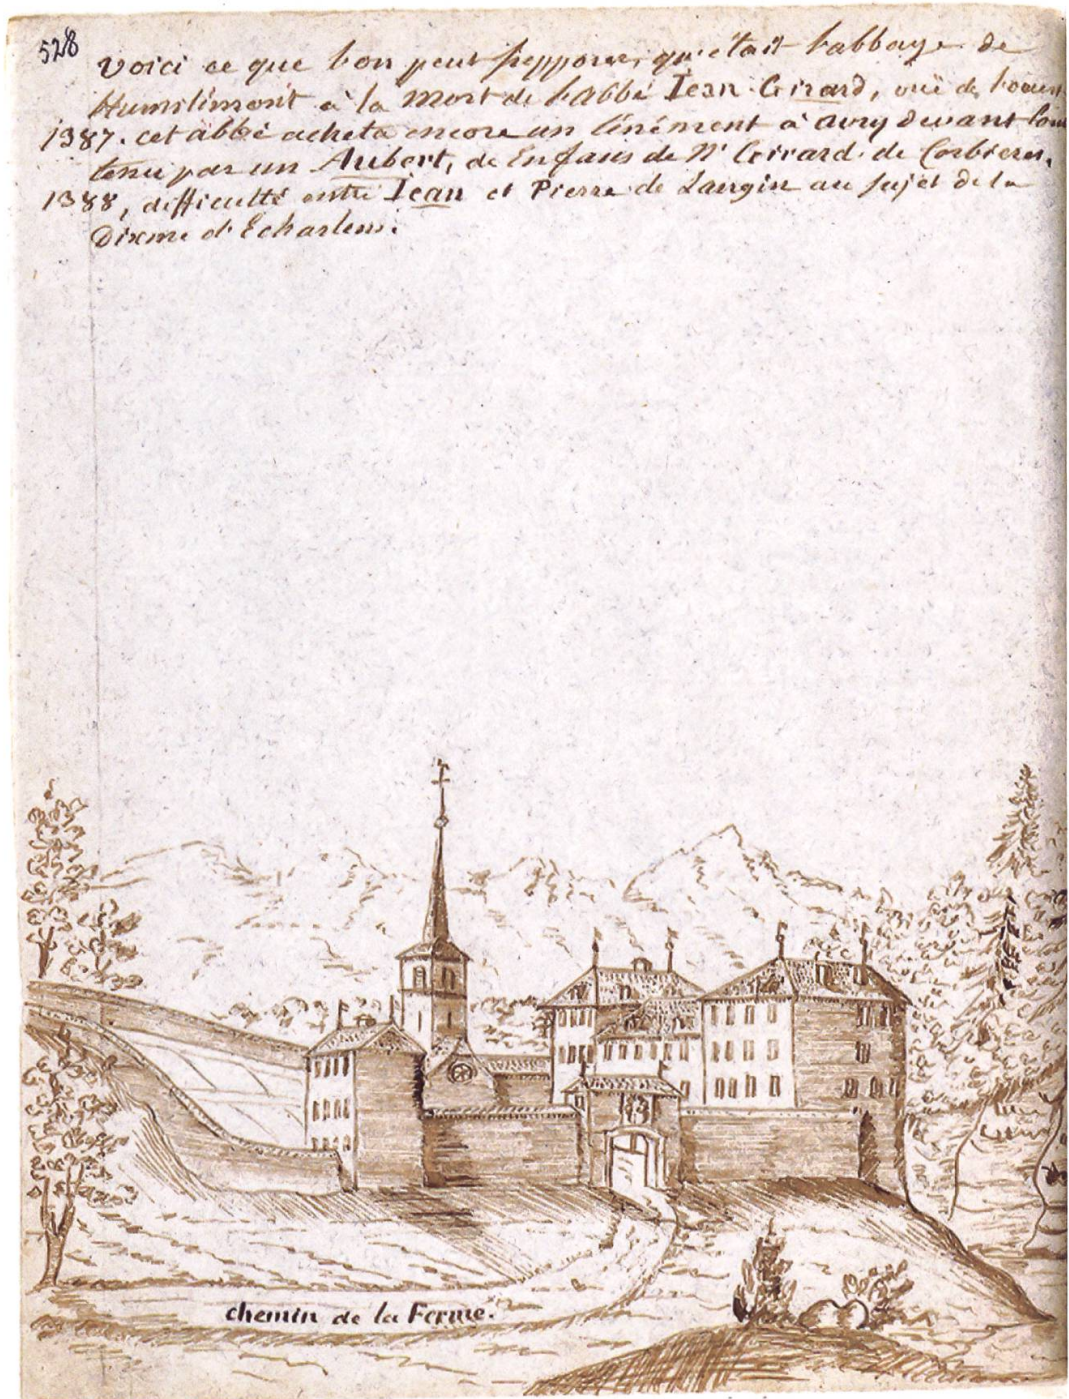 528
Voici ce que l'on peut supposer, qu'était l'abbaye de
Humilimont à la Mort de l'Abbé Jean Girard, vuë de l'ouest
1387. cet abbé acheta encore un ténément à avry devant
tenu par un Aubert, de Enfans de Nt Girard de Corbieres.
1388, difficulté entre Jean et Pierre de Langin au sujet de la
Dixme d'Echarlens.
chemin de la Ferme.